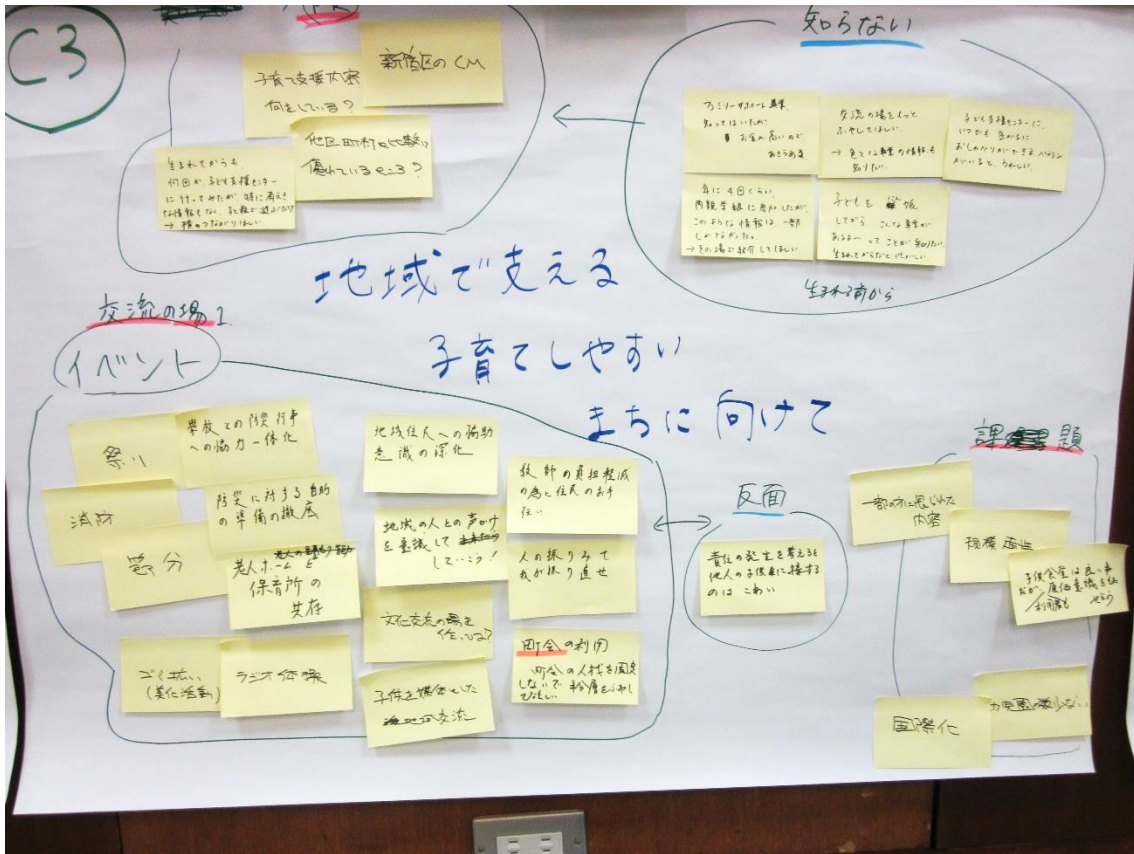 C3
PR
新宿区のCM
子育て支援内容
何をしている?
他区町村と比較し
優れているところ?
生まれてからも、
何回か、子ども支援センター
に行ってみたが、特に
な情報もなく、
→横のつながりほしい
知らない
ファミリーサポート事業、
知ってはいたが、
お金が高いので
あきらめた
交流の場をもっと
ふやしてほしい
→色々な事業の情報も
知りたい
子ども支援センターに、
いつでも気がるに
おしゃべりができる
がいると、うれしい
年に4回くらい
両親学級に参加したが、
このような情報は一部
しかでなかった。
→その場で紹介してほしい
子どもを妊娠
してから、こんな事業が
あるよーってことが知りたい
生まれてからだと忙しい
生まれる前から
地域で支える
子育てしやすい
まちに向けて
交流の場1.
イベント
祭り
学校との防災行事
への協力一体化
消防
防災に対する自助
の準備の徹底
節分
老人ホームと
保育所の
共存
ゴミ拾い
(美化活動)
ラジオ体操
地域住民への協助
意識の深化
地域の人との声かけ
を意識して
していこう!
文化交流の場を
子供を媒体とした
交流
教師の負担軽減
の為に住民のお手
伝い
人の振りみて
我が振り直せ
町会の利用
町会の人材を固定
しないで
反面
責任の発生を考えると
他人の子供達に接する
のはこわい
課題
一部の方に限られた
内容
規模
子供食堂は良い事
だが、
国際化